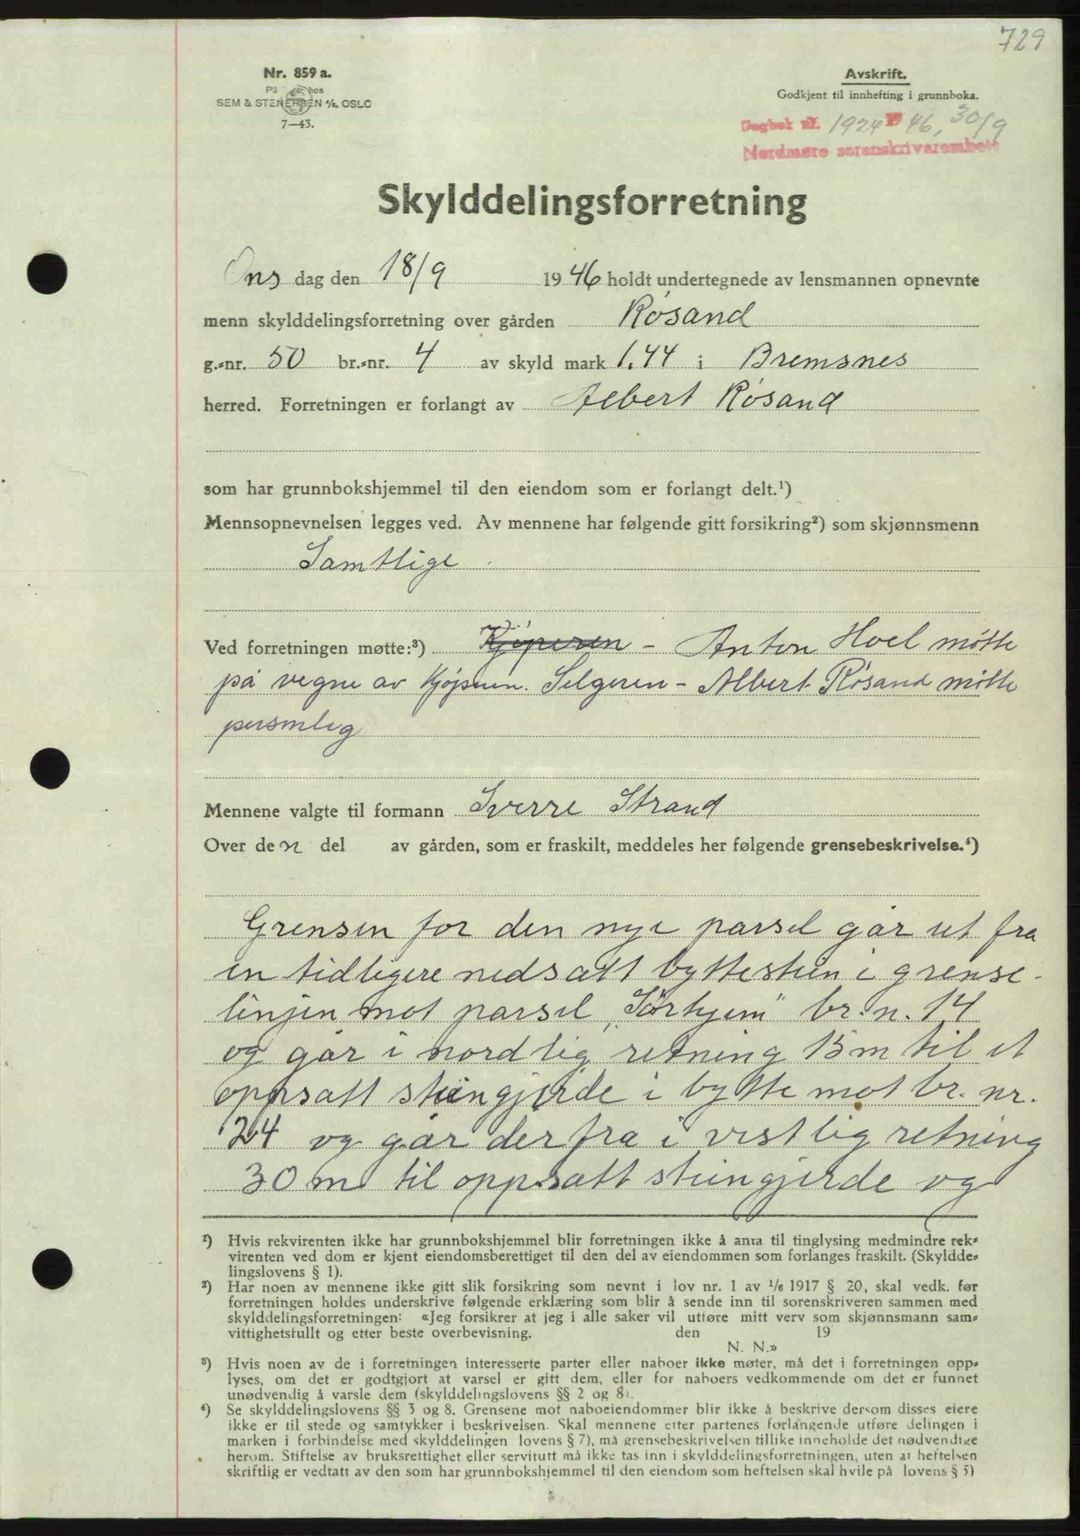 729
Nr. 859 a.
På lager hos
SEM & STENERSEN A/S, OSLO
7—43.
Avskrift.
Godkjent til innhefting i grunnboka.
Dagbok nr. 1924 1946, 30/9
Nordmøre sorenskriverembete
Skylddelingsforretning
Ons dag den 18/9 1946 holdt undertegnede av lensmannen opnevnte
menn skylddelingsforretning over gården Røsand
g.-nr. 50 br.-nr. 4 av skyld mark 1.44 i Bremsnes
herred. Forretningen er forlangt av Albert Røsand
som har grunnbokshjemmel til den eiendom som er forlangt delt.¹)
Mennsopnevnelsen legges ved. Av mennene har følgende gitt forsikring²) som skjønnsmenn
Samtlige
Ved forretningen møtte:³) Kjøperen – Anton Hoel møtte
på vegne av kjøperen. Selgeren – Albert Røsand møtte
personlig
Mennene valgte til formann Sverre Strand
Over den del av gården, som er fraskilt, meddeles her følgende grensebeskrivelse.⁴)
Grensen for den nye parsel går ut fra
en tidligere nedsatt byttestein i grense-
linjen mot parsel „Sørhjem" br. n. 14
og går i nordlig retning 15 m til et
oppsatt steingjerde i bytte mot br. nr.
24 og går derfra i vestlig retning
30 m til oppsatt steingjerde og
¹) Hvis rekvirenten ikke har grunnbokshjemmel blir forretningen ikke å anta til tinglysing medmindre rek-
virenten ved dom er kjent eiendomsberettiget til den del av eiendommen som forlanges fraskilt. (Skyldde-
lingslovens § 1).
²) Har noen av mennene ikke gitt slik forsikring som nevnt i lov nr. 1 av 1/6 1917 § 20, skal vedk. før
forretningen holdes underskrive følgende erklæring som blir å sende inn til sorenskriveren sammen med
skylddelingsforretningen: «Jeg forsikrer at jeg i alle saker vil utføre mitt verv som skjønnsmann sam-
vittighetsfullt og etter beste overbevisning. den 19
N. N.»
³) Hvis noen av de i forretningen interesserte parter eller naboer ikke møter, må det i forretningen opp-
lyses, om det er godtgjort at varsel er gitt dem, eller for naboers vedkommende om det er funnet
unødvendig å varsle dem (skylddelingslovens §§ 2 og 8).
⁴) Se skylddelingslovens §§ 3 og 8. Grensene mot naboeiendommer blir ikke å beskrive dersom disses eiere
ikke er til stede og samtykker i beskrivelsen. Skal mennene etter partenes forlangende utføre delingen i
marken i forbindelse med skylddelingen lovens § 7), må grensebeskrivelsen tillike inneholde det nødvendige
herom. Stiftelse av bruksrettighet eller servitutt må ikke tas inn i skylddelingsforretningen, uten at heftelsen
skriftlig er vedtatt av den som har grunnbokshjemmel til den eiendom som heftelsen skal hvile på lovens § 5)